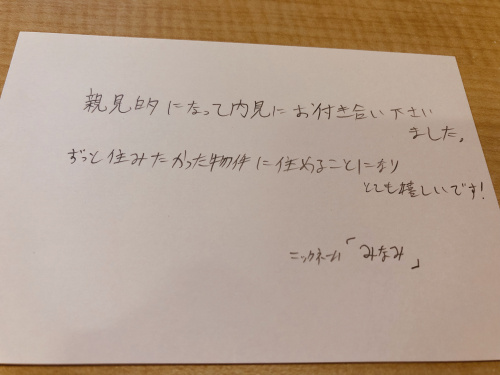 親見的になって内見にお付き合い下さい
ました。
ずっと住みたかった物件に住めることになり
とても嬉しいです!
ニックネーム「みなみ」